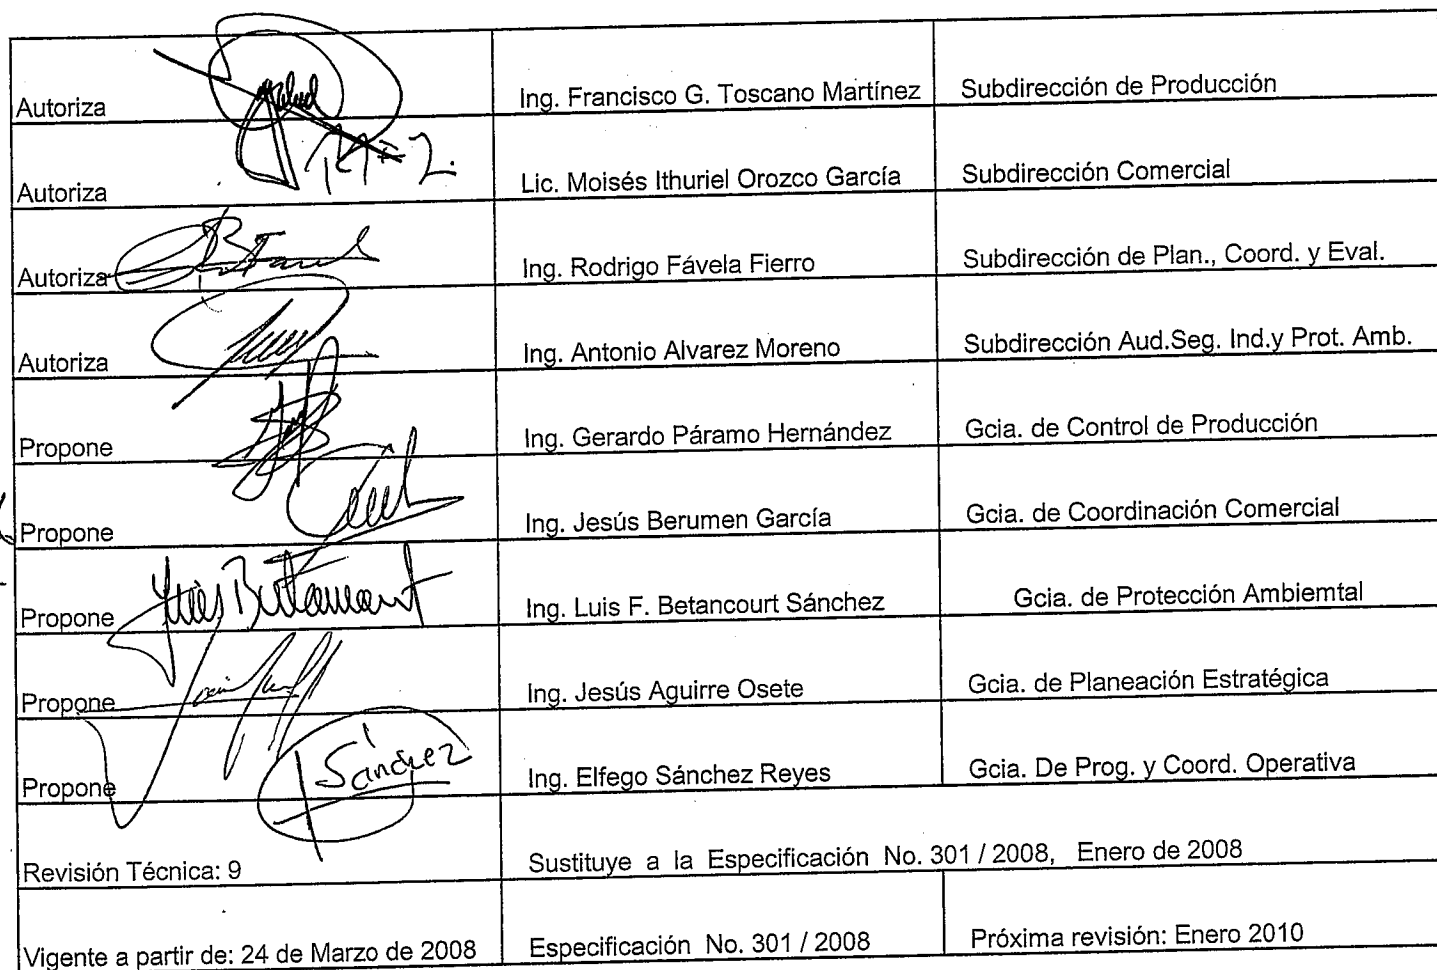 Autoriza Ing. Francisco G. Toscano Martínez Subdirección de Producción
Autoriza Lic. Moisés Ithuriel Orozco García Subdirección Comercial
Autoriza Ing. Rodrigo Fávela Fierro Subdirección de Plan., Coord. y Eval.
Autoriza Ing. Antonio Alvarez Moreno Subdirección Aud.Seg. Ind.y Prot. Amb.
Propone Ing. Gerardo Páramo Hernández Gcia. de Control de Producción
Propone Ing. Jesús Berumen García Gcia. de Coordinación Comercial
Propone Ing. Luis F. Betancourt Sánchez Gcia. de Protección Ambiemtal
Propone Ing. Jesús Aguirre Osete Gcia. de Planeación Estratégica
Propone Sánchez Ing. Elfego Sánchez Reyes Gcia. De Prog. y Coord. Operativa
Revisión Técnica: 9 Sustituye a la Especificación No. 301 / 2008, Enero de 2008
Vigente a partir de: 24 de Marzo de 2008 Especificación No. 301 / 2008 Próxima revisión: Enero 2010